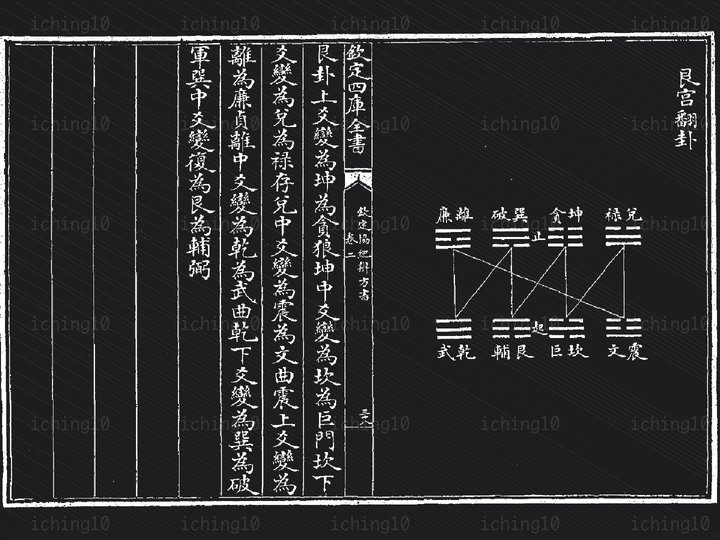 艮宮翻卦
兌禄
坤貪
巽破
離廉
止
起
震文
坎巨
艮輔
乾武
欽定四庫全書
欽定協紀辨方書
卷二
艮卦上爻變為坤為貪狼坤中爻變為坎為巨門坎下
爻變為兌為禄存兌中爻變為震為文曲震上爻變為
離為廉貞離中爻變為乾為武曲乾下爻變為巽為破
軍巽中爻變復為艮為輔弼
iching10